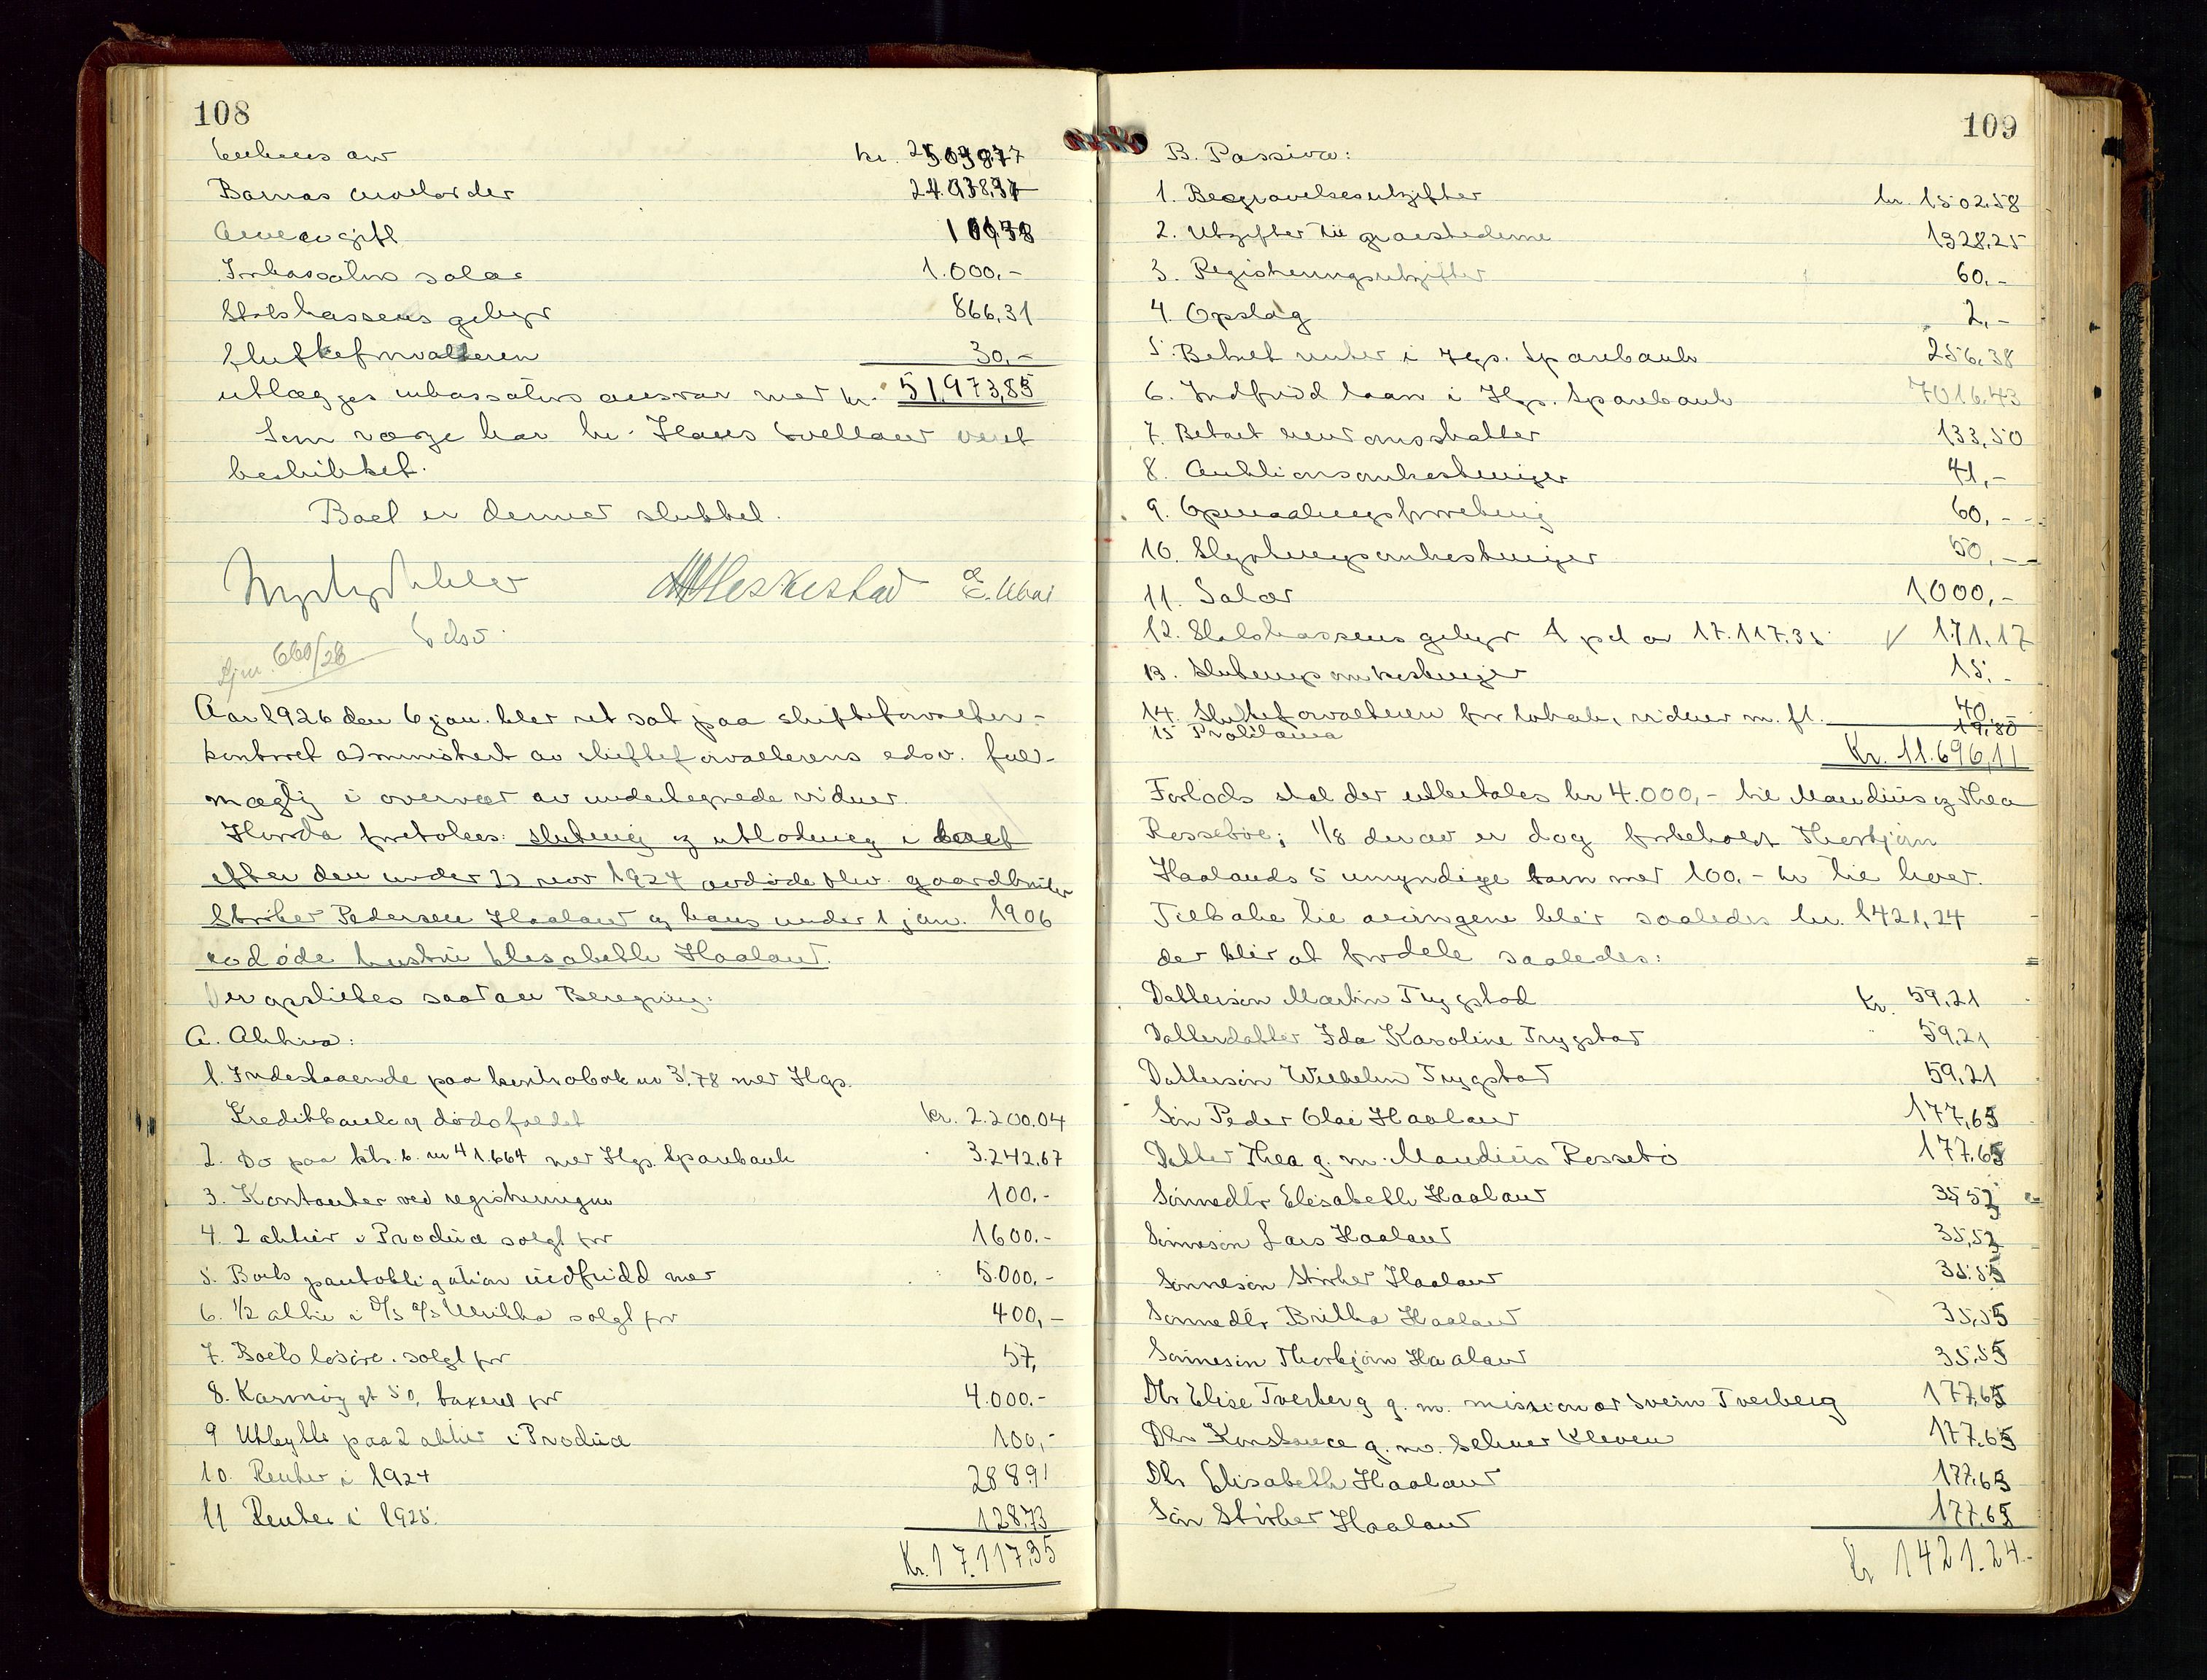 108
Enkens arv kr. 25039,77
Barnas arvelodder 24.938,37
Arveavgift
Inkassators salær 1.000.-
Statskassens gebyr 866,31
Skifteforvalteren 30,-
utlægges inkassators ansvar med kr. 51,973,85
Som verge har hr. Hans været
beskikket.
Boet er dermed sluttet.
Heskestad
Edsv.
Sjm. 660/28
Aar 1926 den 6 jan. blev ret sat paa skifteforvalter-
kontoret administrert av skifteforvalterens edsv. fuld-
mægtig i overvær av undertegnede vidner.
Hvorda foretokes: slutning og utlodning i boet
efter den under 22 nov 1924 avdøde blv. gaardbruker
Størker Pedersen Haaland og hans under 1 jan. 1906
avdøde hustru Elisabeth Haaland.
Der opstilles saadan Beregning:
A. Aktiva:
1. Indestaaende paa kontrabok nr 3178 med Hgs.
Kreditbank v dødsfaldet kr. 2.200.04
2. Do paa ktr. b. nr 41.664 med Hgs. Sparebank 3.242,67
3. Kontanter ved registreringen 100.-
4. 2 aktier i Prodùa solgt for 1600.-
5. Boets pantobligation indfridd med 5.000,-
6. 1/2 aktie i D/S A/S solgt for 400,-
7. Boets løsøre solgt for 57,
8. Karmøy gt 50, taxeret for 4.000.-
9 Utbytte paa 2 aktier i Prodùa 100,-
10. Renter i 1924 288.91
11 Renter i 1925. 128,73
Kr. 17.117,35
109
B. Passiva:
1. Begravelsesutgifter kr. 1502,58
2. Utgifter til gravstederne 1328,25
3. Registreringsutgifter 60.-
4. Opslag 2,-
5. Betalt renter i Hgs. Sparebank 256,38
6. Indfridd laan i Hgs. Sparebank 7016.43
7. Betalt skatter 133,50
8. Auktionsomkostninger 41,-
9. 60,-
10. Skjøtningsomkostninger 50,-
11. Salær 1000,-
12. Statskassens gebyr 1 pct av 17.117.35 171,17
13. Slutningsomkostninger 15,-
14. Skifteforvalteren for lokale, vidner m. fl. 40,-
15 Proklama 19,80
Kr. 11.696,11
Forlods skal der utbetales kr 4.000,- til Maudius og Thea
Rossebø; 1/8 derav er dog forbeholdt Thorbjørn
Haalands 5 umyndige barn med 100.- kr til hver.
Tilbake til arvingene blir saaledes kr. 1421,24
der blir at fordele saaledes:
Dattersøn Martin Trygstad kr. 59,21
Datterdatter Ida Karoline Trygstad 59,21
Dattersøn Wilhelm Trygstad 59,21
Søn Peder Olai Haaland 177,65
Datter Thea g. m. Maudius Rossebø 177,65
Sønnedtr Elisabeth Haaland 35,53
Sønnesøn Lars Haaland 35,53
Sønnesøn Størker Haaland 35,53
Sønnedtr Britha Haaland 35,53
Sønnesøn Thorbjørn Haaland 35,53
Dtr Elise Tverberg g. m. missionær Svein Tverberg 177,65
Dtr Konstance g. m. Selmer Kleven 177,65
Dtr Elisabeth Haaland 177,65
Søn Størker Haaland 177,65
Kr 1421.24.-